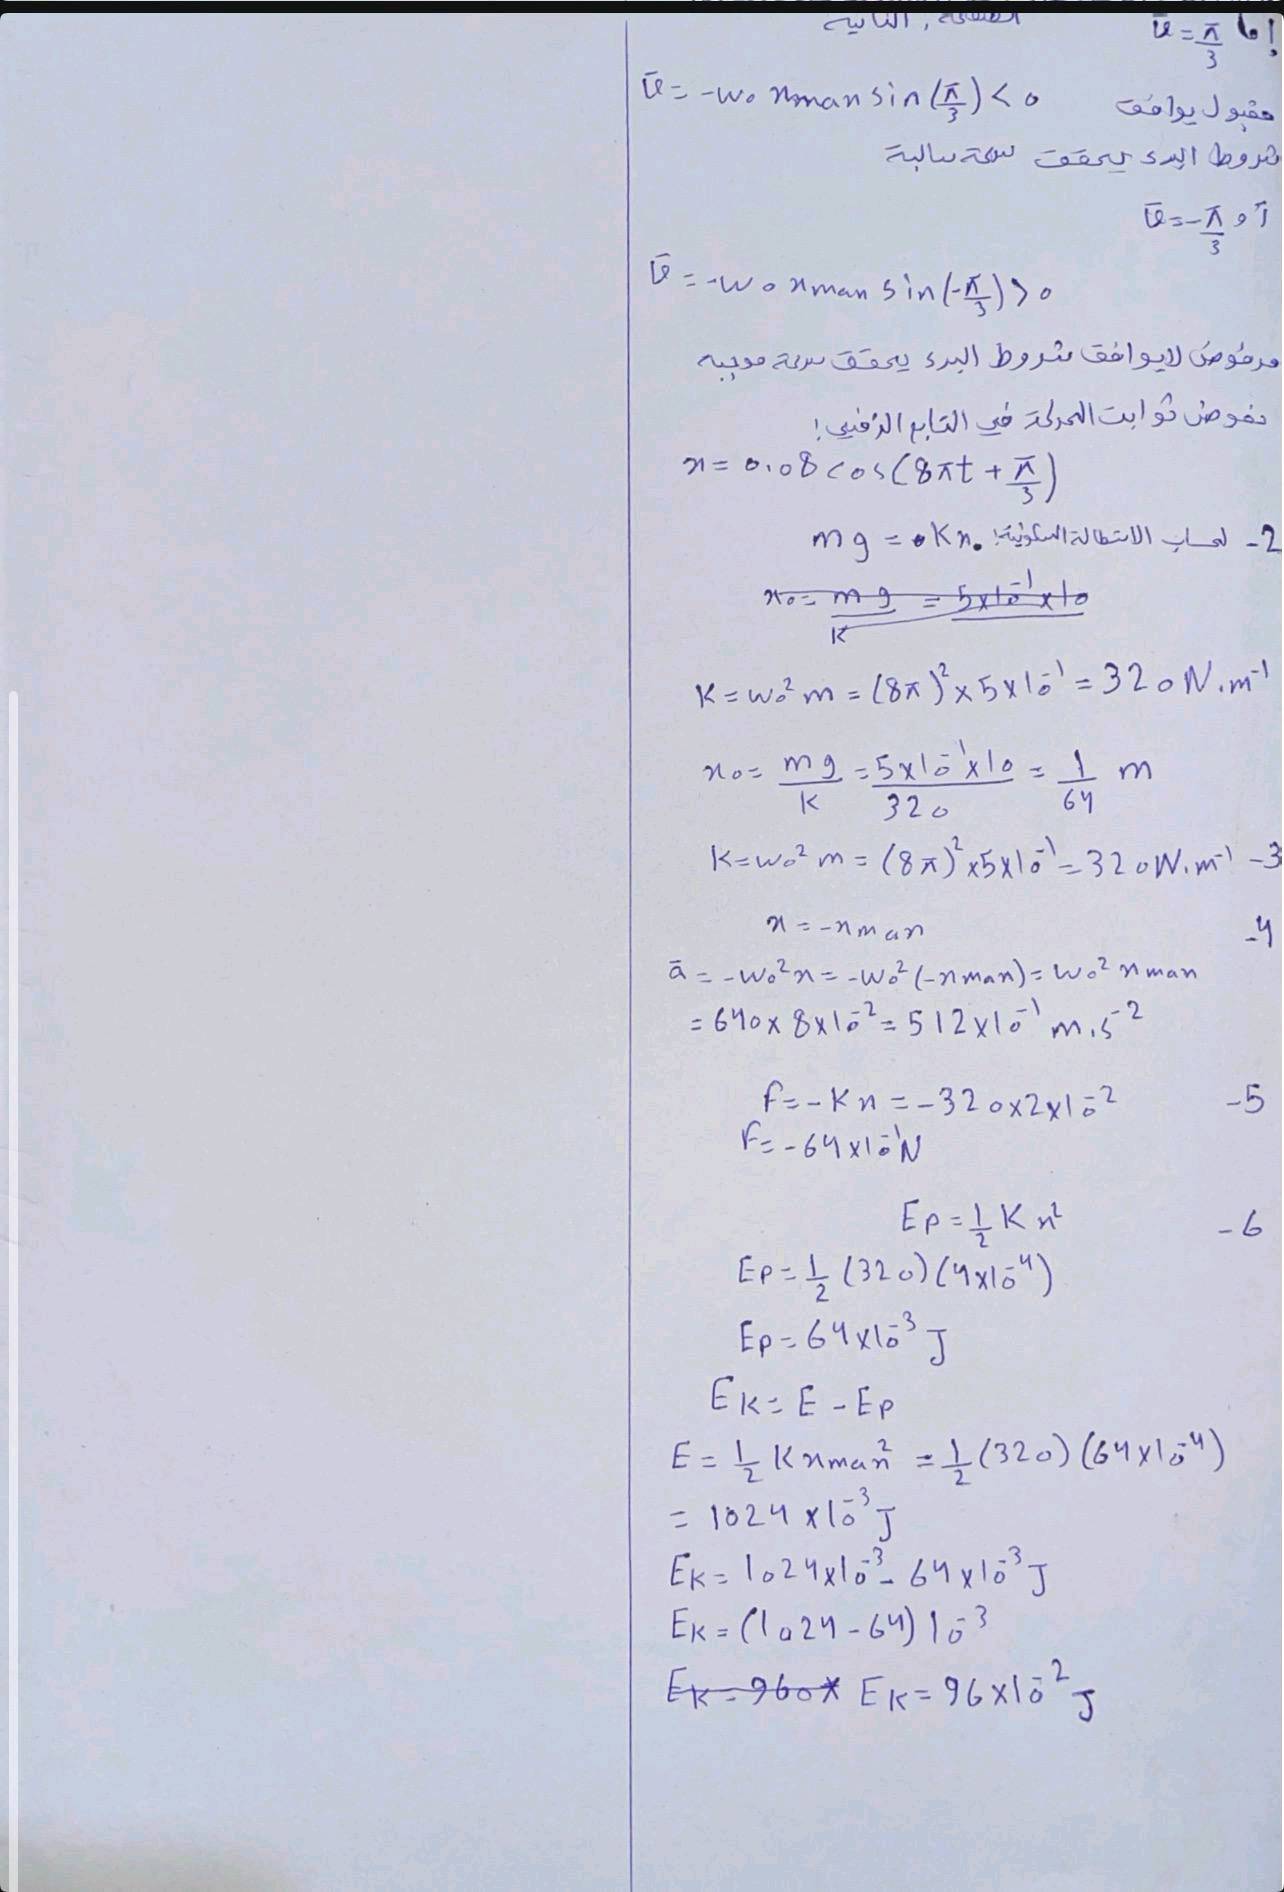 الصفحة الثانية
إما φ̄ = π/3
v̄ = -ω₀ xmax sin(π/3) < 0 مقبول يوافق
شروط البدء يحقق سرعة سالبة
أو φ̄ = -π/3
v̄ = -ω₀ xmax sin(-π/3) > 0
مرفوض لا يوافق شروط البدء يحقق سرعة موجبة
نعوض ثوابت الحركة في التابع الزمني:
x = 0.08 cos(8πt + π/3)
2- لحساب الاستطالة السكونية: mg = Kx₀
x₀ = mg/K = 5×10⁻¹×10
K = ω₀² m = (8π)² × 5×10⁻¹ = 320 N.m⁻¹
x₀ = mg/K = 5×10⁻¹×10/320 = 1/64 m
3- K = ω₀² m = (8π)² × 5×10⁻¹ = 320 N.m⁻¹
4- x = -xmax
ā = -ω₀² x = -ω₀² (-xmax) = ω₀² xmax
= 640 × 8×10⁻² = 512×10⁻¹ m.s⁻²
5- F = -Kx = -320×2×10⁻²
F = -64×10⁻¹ N
6- Ep = 1/2 K x²
Ep = 1/2 (320)(4×10⁻⁴)
Ep = 64×10⁻³ J
EK = E - Ep
E = 1/2 K xmax² = 1/2 (320)(64×10⁻⁴)
= 1024×10⁻³ J
EK = 1024×10⁻³ - 64×10⁻³ J
EK = (1024-64) 10⁻³
EK = 960× EK = 96×10⁻² J